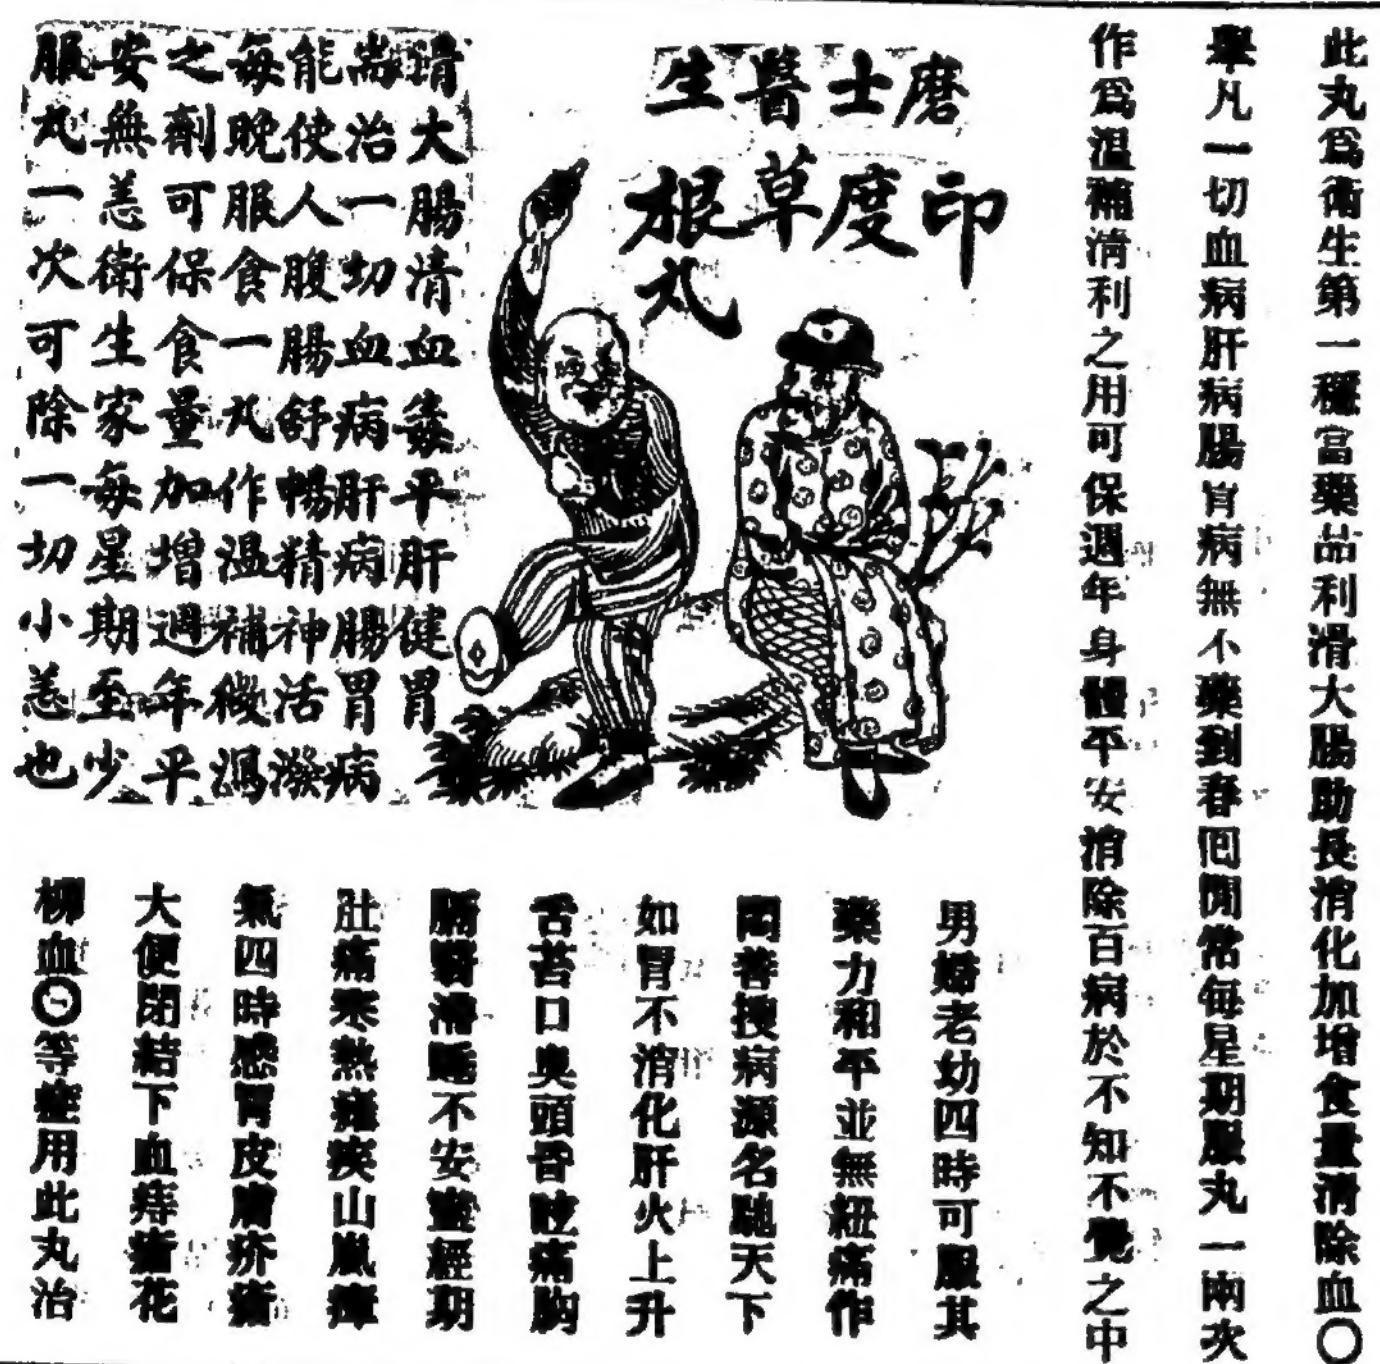 此丸爲衛生第一穩當藥品利滑大腸助長消化加增食量清除血〇
舉凡一切血病肝病腸胃病無不藥到春囘閒常每星期服丸一兩次
作爲溫補淸利之用可保週年身體平安消除百病於不知不覺之中
磨士醫生
印度草根丸
淸大腸清血毒平肝健胃
耑治一切血病肝病腸胃病
能使人腹腸舒暢精神活潑
每晚服食一丸作溫補微瀉
之劑可保食量加增週年平
安無恙衛生家每星期至少
服丸一次可除一切小恙也
男婦老幼四時可服其
藥力和平並無紐痛作
悶善搜病源名馳天下
如胃不消化肝火上升
舌苔口臭頭昏腔痛胸
膈翳滯睡不安寧經期
肚痛寒熱瘧疾山嵐瘴
氣四時感冒皮膚疥瘡
大便閉結下血痔瘡花
柳血〇等症用此丸治